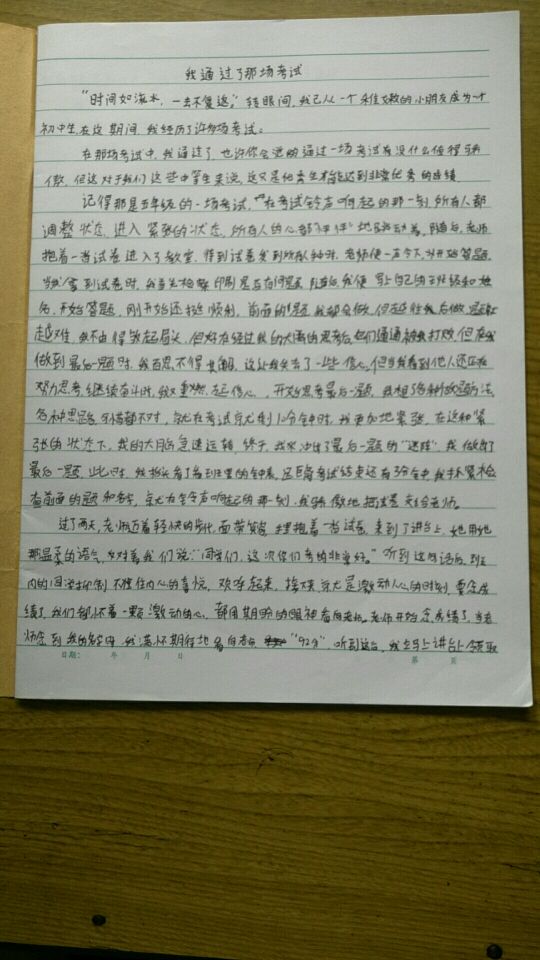 我通过了那场考试
"时间如海水，一去不复返。"转眼间，我已从一个稚嫩的小朋友成为一个
初中生，在这期间，我经历了许多场考试。
在那场考试中，我通过了，也许你会觉的通过一场考试有没什么值得骄
傲，但这对于我们这些中等生来说，这又是他考生才能达到非常优秀的成绩
记得那是五年级的一场考试，在考试铃声响起的那一刻，所有人都
调整状态，进入紧张的状态，所有人的心都"怦怦"地跳动着，随后，老师
抱着一沓试卷进入了教室，待到试卷发到所有人手时，老师便一声令下，开始答题。
当我拿到试卷时，我首先检查印刷是否有问题，随后，我便写上自己的班级和姓
名，开始答题，刚开始还挺顺利，前面的题我都会做，但越往后做，题
越难，我不由得皱起眉头，但好在经过我的大脑的思考后，它们通通被我打败，但在我
做到最后一题时，我百思不得其解，这让我失去了一些信心，但当我看到他人还正在
努力思考，继续奋斗时，我又重燃起信心，开始思考最后一题，我想了各种做题方法，
各种思路，可惜都不对，就在考试只剩10分钟时，我更加地紧张，在这种紧
张的状态下，我的大脑急速运转，终于，我冲出了最后一题的"迷阵"，我做出了
最后一题，此时，我抬头看了看班里的钟表，距离考试结束还有3分钟，我赶紧检
查前面的题和名字，就在铃声响起的那一刻，我骄傲地把试卷交给老师。
过了两天，老师迈着轻快的步伐，面带笑容，抱着一沓试卷，来到了讲台上，她用她
那温柔的语气，对着我们说："同学们，这次你们考的非常好。"听到这句话后，班
内的同学抑制不住内心的喜悦，欢呼起来，接下来就是激动人心的时刻，要念成
绩了，我们都怀着一颗激动的心，都用期盼的眼神看向老师。老师开始念成绩了，当老
师念到我的名字时，我满怀期待地看向老师，"92分"，听到这后，我走上讲台上领取
日期： 年 月 日 第 页